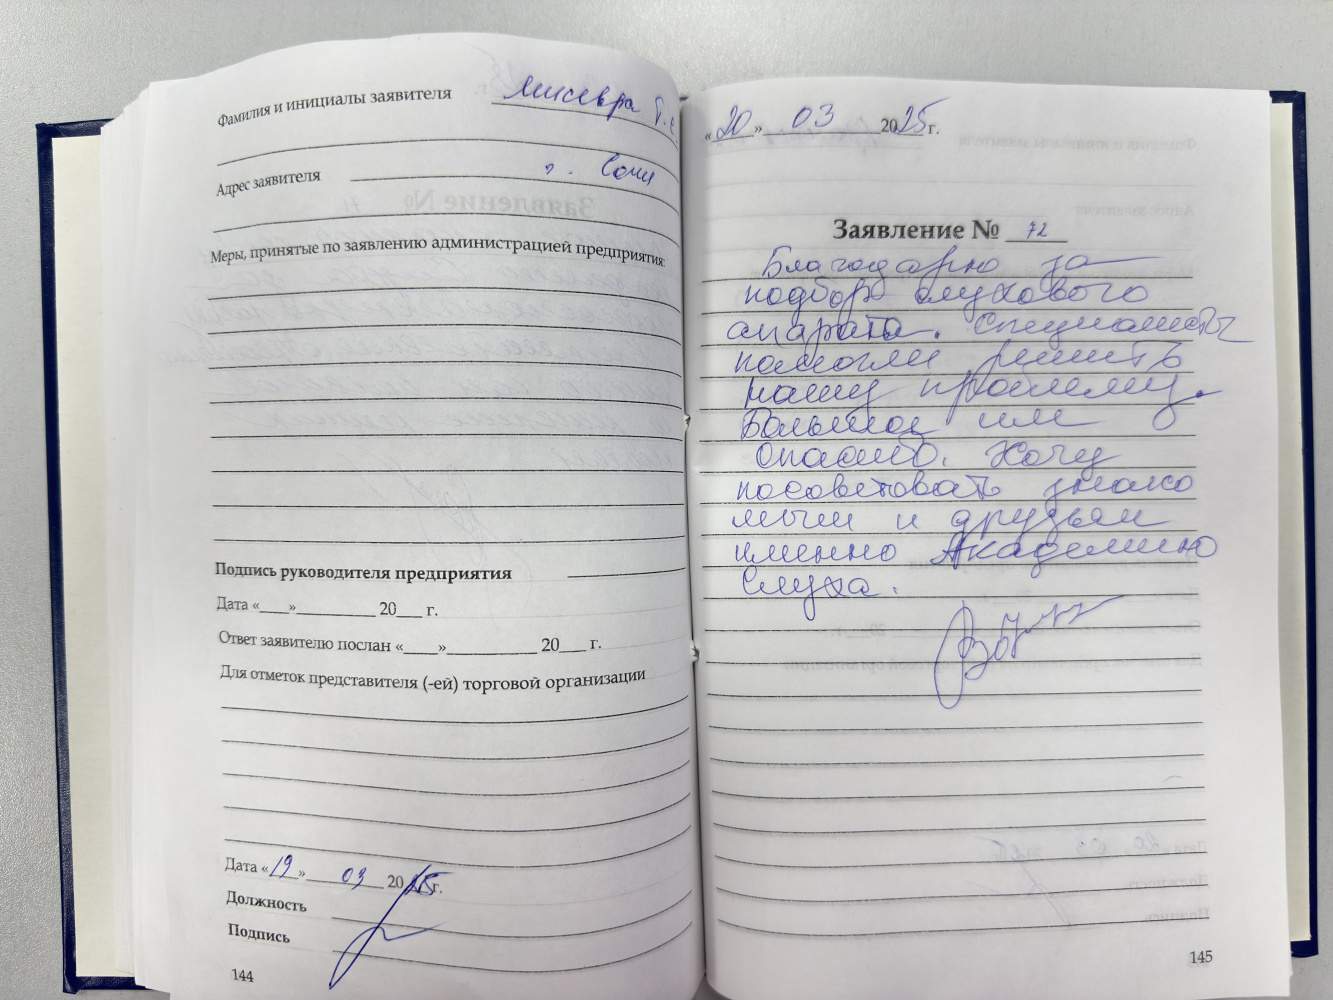 Фамилия и инициалы заявителя
Адрес заявителя г. Сочи
Меры, принятые по заявлению администрацией предприятия:
Подпись руководителя предприятия
Дата «___»_________ 20___ г.
Ответ заявителю послан «____»__________ 20___ г.
Для отметок представителя (-ей) торговой организации
Дата «19» 03 2025г.
Должность
Подпись
144
«20» 03 2025г.
Заявление № 72
Благодарю за
подбор слухового
апарата. Специалисты
помогли решить
нашу проблему.
Большое им
спасибо. Хочу
посоветовать знако
мым и друзьям
именно Академию
Слуха.
145